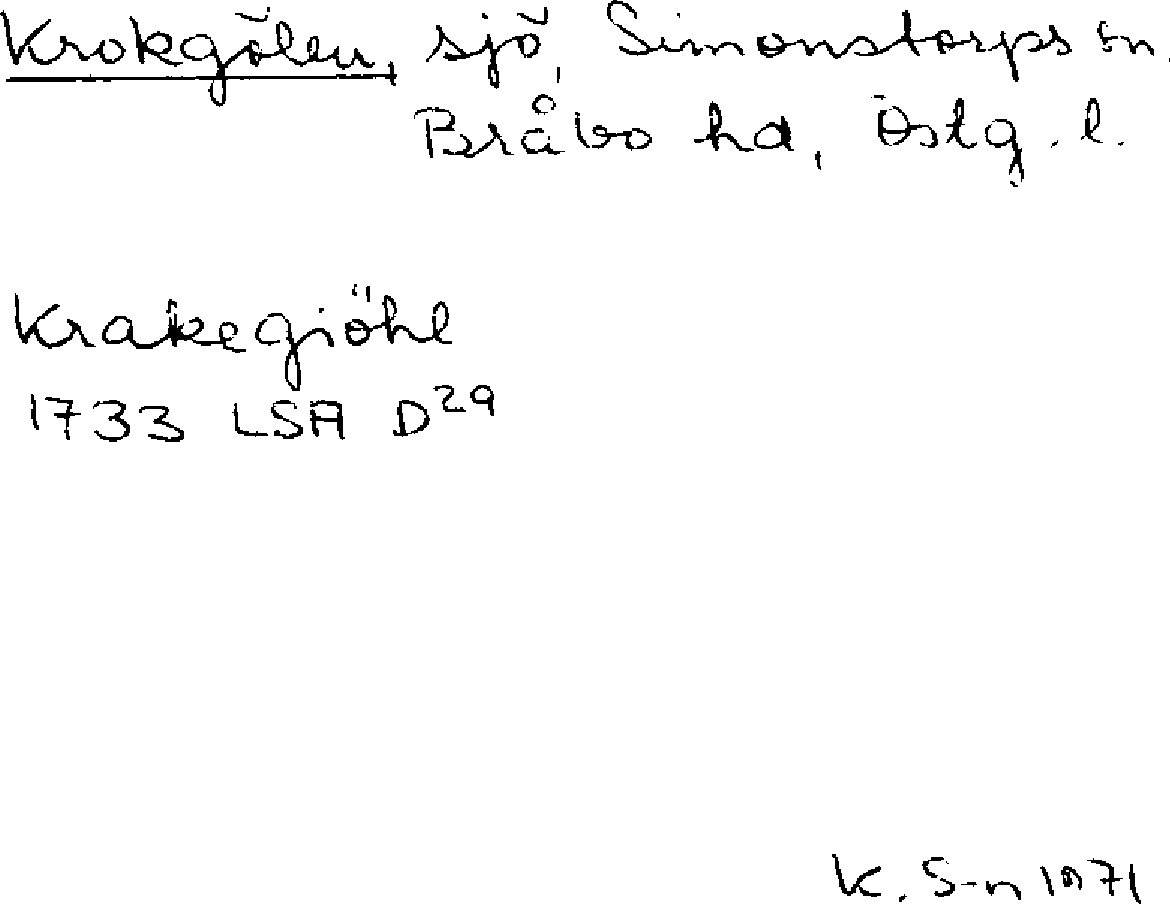 Krokgölen, sjö, Simonstorps sn.
Bråbo hd, Östg. l.
Krakegiöhl
1733 LSA D29
K. S-n 1971